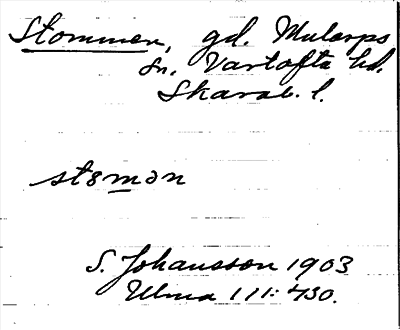 Stommen, gd. Mularps
sn. Vartofta hd.
Skarab. l.
stomən
S. Johansson 1903
Ulma 111:430.